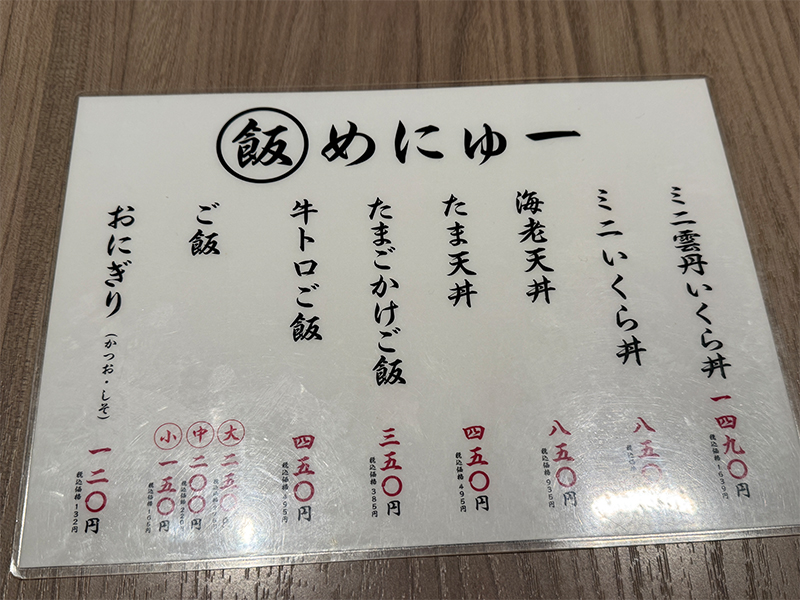 飯 めにゅー
ミニ雲丹いくら丼 一四九〇円
税込価格 1639円
ミニいくら丼 八五〇
税込価格
海老天丼 八五〇円
税込価格 935円
たま天丼 四五〇円
税込価格 495円
たまごかけご飯 三五〇円
税込価格 385円
牛トロご飯 四五〇円
税込価格 495円
ご飯
大 二五〇円
中 二〇〇円
税込価格 220円
小 一五〇円
税込価格 165円
おにぎり(かつお・しそ) 一二〇円
税込価格 132円